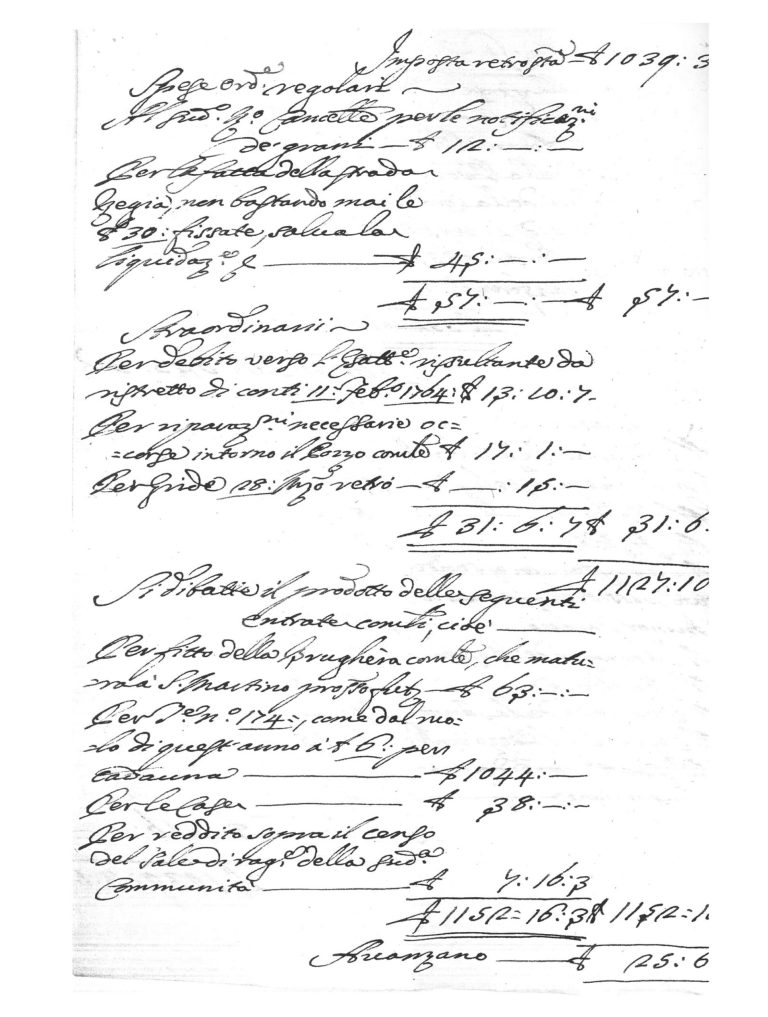 Imposta retroscta £ 1039: 3
Spese ord.e regolari
Al sud.o R.o Cancell.e per le notificaz.ni
de' grani — £ 12: — : —
Per la fatta della strada
Regia, non bastando mai le
£ 30: fissate, salva la
liquidaz.e £ 45: — : —
£ 57: — : — £ 57: —
Straordinarii
Per debito verso l'Esatt.e risultante da
ristretto di conti 11: Feb.o 1764: £ 13: 10: 7
Per riparaz.ni necessarie oc=
=corse intorno il Pozzo com.le £ 17: 1: —
Per Gride 28: Mzo retrò — £ — : 15: —
£ 31: 6: 7 £ 31: 6.
Si dibatte il prodotto delle seguenti £ 1127: 10
entrate com.li, cioè
Per fitto della Brughera com.le, che matu=
=rarà S. Martino pross.o fut.o £ 63: — : —
Per T.e n.o 174=, come dal ruo=
=lo di quest'anno à £ 6: per
cadauna £ 1044: —
Per le Case £ 38: — : —
Per reddito sopra il censo
del Sale di rag.e della sud.a
Communità £ 7: 16: 3
£ 1152= 16: 3 £ 1152= 1
Avanzano £ 25: 6